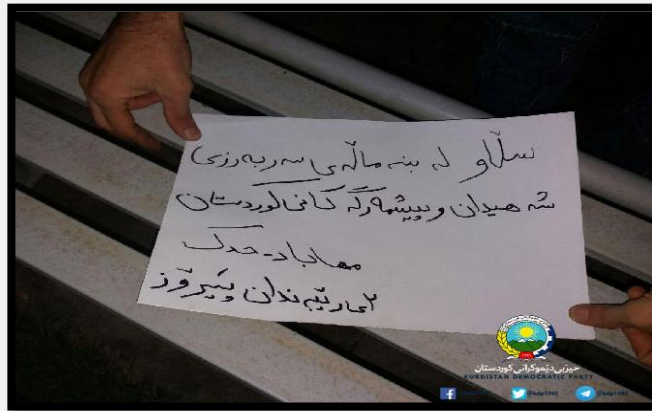 سڵاو له بنه ماڵه ی سه ربه رزی
شه هیدان و پیشمه رگه کانی کوردستان
مهاباد - حدک
٢ی ریبه ندان پیرۆز
حیزبی دێموکراتی کوردستان
KURDISTAN DEMOCRATIC PARTY
@kdp1945